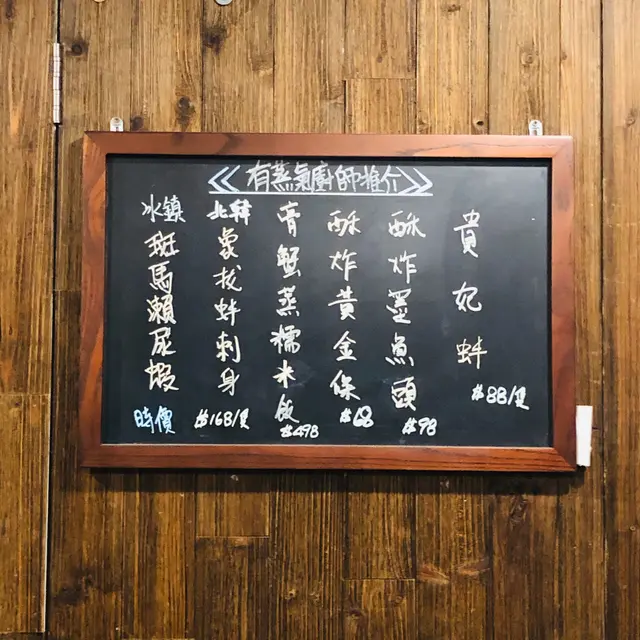 《有蒸氣廚師推介》
貴妃蚌
$88/隻
酥炸墨魚頭
$98
酥炸黃金條
$68
膏蟹蒸糯米飯
$498
北韓象拔蚌刺身
$168/隻
冰鎮斑馬瀨尿蝦
時價